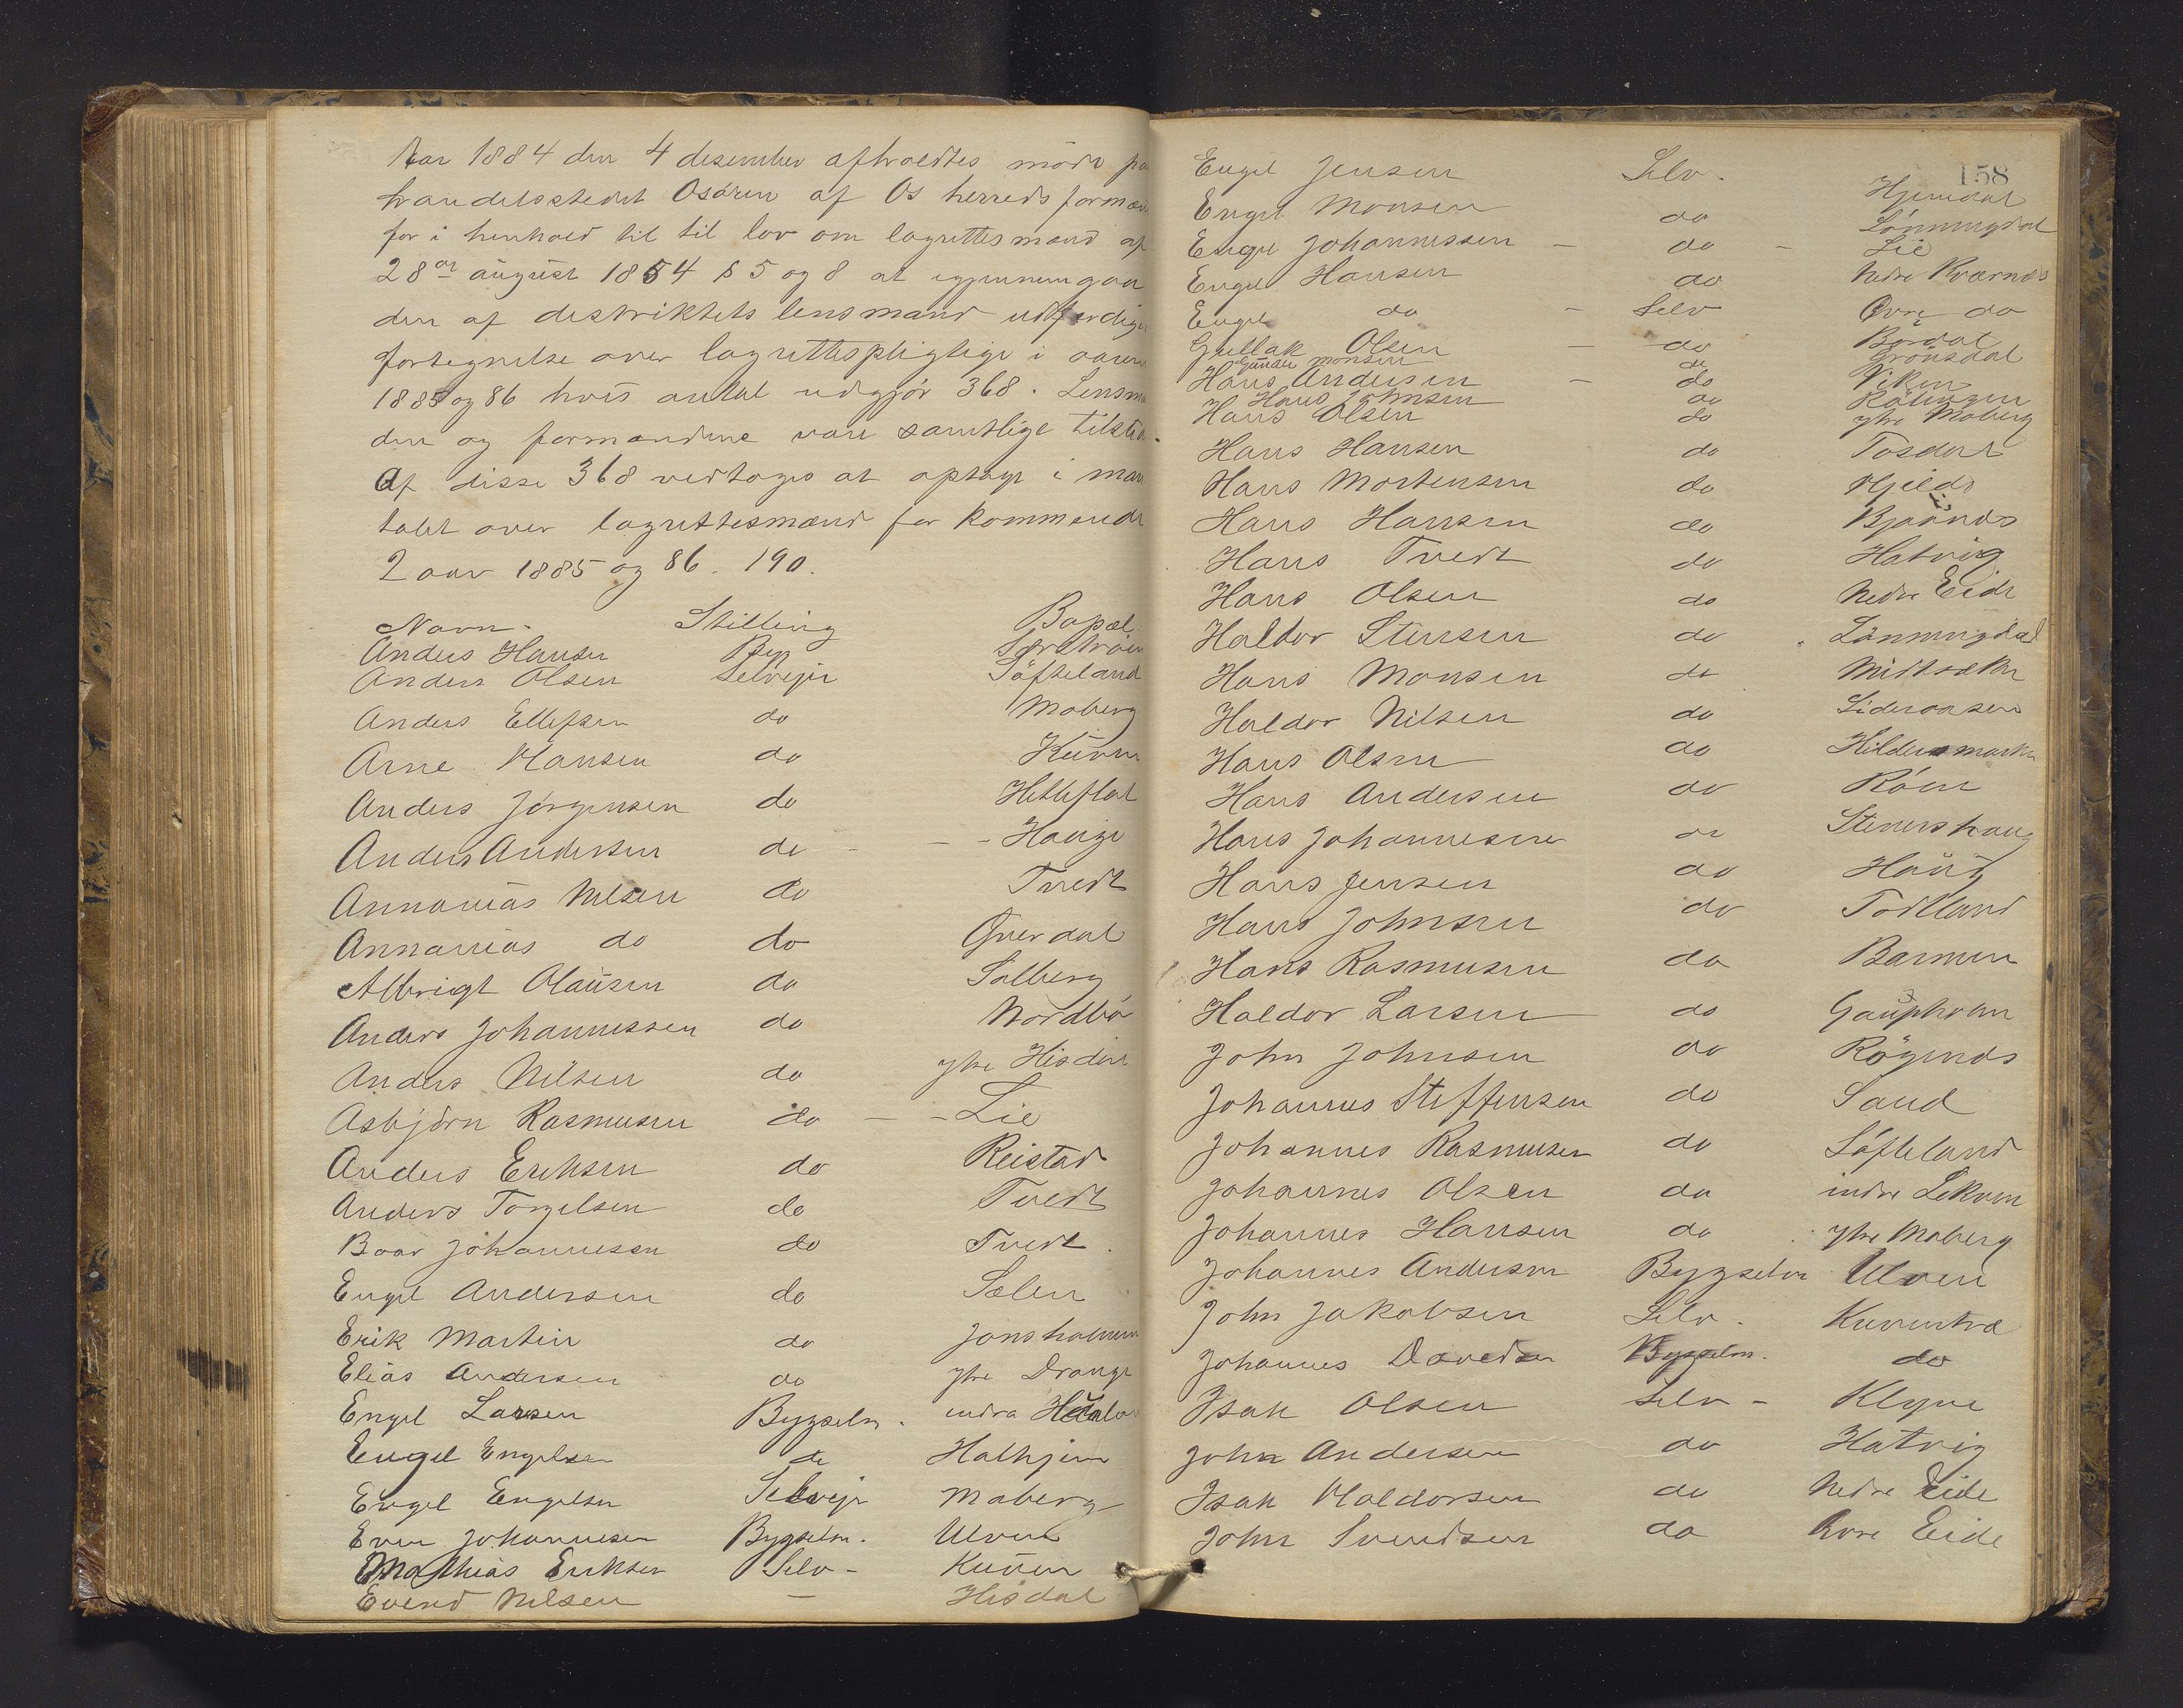 Aar 1884 den 4 desember afholdtes møde pa
handelsstedet Osøren af Os herreds formæn
for i henhold til til lov om lagrettesmænd af
28de august 1854 § 5 og 8 at igjennemgaa
den af destriktets lensmand udferdige
fortegnelse over lagrettespligtige i aaren
1885 og 86 hvis antal udgjør 368. Lensm
den og formændene vare samtlige tilsted.
Af disse 368 vedtoges at optage i man
talet over lagrettesmænd for kommende
2 aar 1885 og 86. 190.
Navn. Stilling Bopæl
Anders Hansen Byg
Anders Olsen Selvejer Søfteland
Anders Ellefsen do Moberg
Arne Hansen do Kuven
Anders Jørgensen do Hetleflot
Anders Andersen do - - - Hauge
Annanias Nilsen do Tvedt
Annanias do do Gjerdal
Albrigt Olausen do Solberg
Anders Johannessen do Nordbø
Anders Nilsen do ytre Hisdal
Asbjørn Rasmusen do - - Lie
Anders Eriksen do Reistad
Anders Torgilsen do Tvedt
Baar Johannesen do Tvedt.
Engel Andersen do Sælen
Erik Martin do Jonsholmen
Elias Andersen do ytre Drange
Engel Larsen Bygselm. indra
Engel Engelsen do Halhjem
Engel Engelsen Selvejr Moberg
Even Johannesen Bygselm. Ulven
Mathias Eriksen Selv - Kuven
Evend Nilsen - Hisdal
158
Engel Jensen Selv. Hjemdal
Engel Monsen do Lønningdal
Engel Johannessen - do - Lie
Engel Hansen do Nedre Kværnes
Engel do - Selv Øvre do
Gullak Olsen - do Børdal
Gunder Monsen do Grønsdal
Hans Andersen - do Viken
Hans Johnsen do
Hans Olsen do ytre Moberg
Hans Hansen do Tøsdal
Hans Mortensen do Hjelds
Hans Hansen do Bjånæs
Hans Tvedt do Hatvig
Hans Olsen do Nedre Eide
Haldor Stensen do Lønningdal
Hans Monsen do Midtsæter
Haldor Nilsen do
Hans Olsen do
Hans Andersen do Røen
Hans Johannesen do Stenershaug
Hans Jensen do Haug
Hans Johnsen do Todland
Hans Rasmusen do Barmen
Haldor Larsen do Gaupholm
John Johnsen do Røgenes
Johannes Steffensen do Sand
Johannes Rasmusen do Søfteland
Johannes Olsen do indre Lekven
Johannes Hansen do ytre Moberg
Johannes Andersen Bygselm Ulven
John Jakobsen Selv. Kuventræ
Johannes Davedsen Bygselm. do
Isak Olsen Selv - Klyve
John Andersen do Hatvig
Isak Haldorsen do Nedre Eide
John Svendsen do Øvre Eide